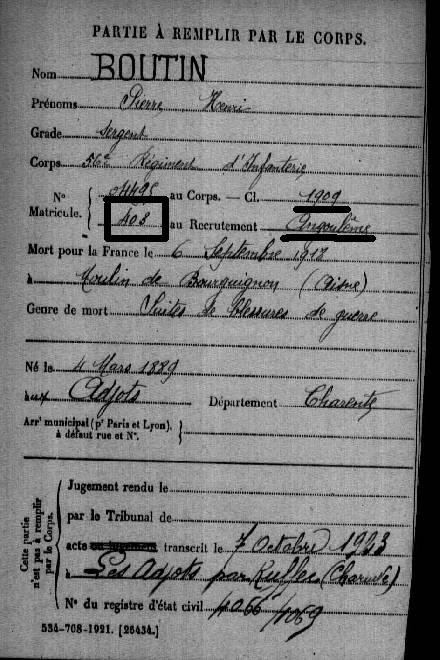 PARTIE À REMPLIR PAR LE CORPS.
Nom BOUTIN
Prénoms Pierre Henri
Grade Sergent
Corps 56e Régiment d'Infanterie
Nº 4498 au Corps. — Cl. 1909
Matricule. 408 au Recrutement Angoulême
Mort pour la France le 6 Septembre 1918
à Moulin de Bourguignon (Aisne)
Genre de mort Suites de blessures de guerre
Né le 4 Mars 1889
aux Adjots Département Charente
Arrt municipal (pr Paris et Lyon),
à défaut rue et Nº.
Cette partie
n'est pas à remplir
par le Corps.
Jugement rendu le
par le Tribunal de
acte ou jugement transcrit le 7 Octobre 1923
à Les Adjots par Ruffec (Charente)
Nº du registre d'état civil 4066/4069
534-708-1921. [26434.]